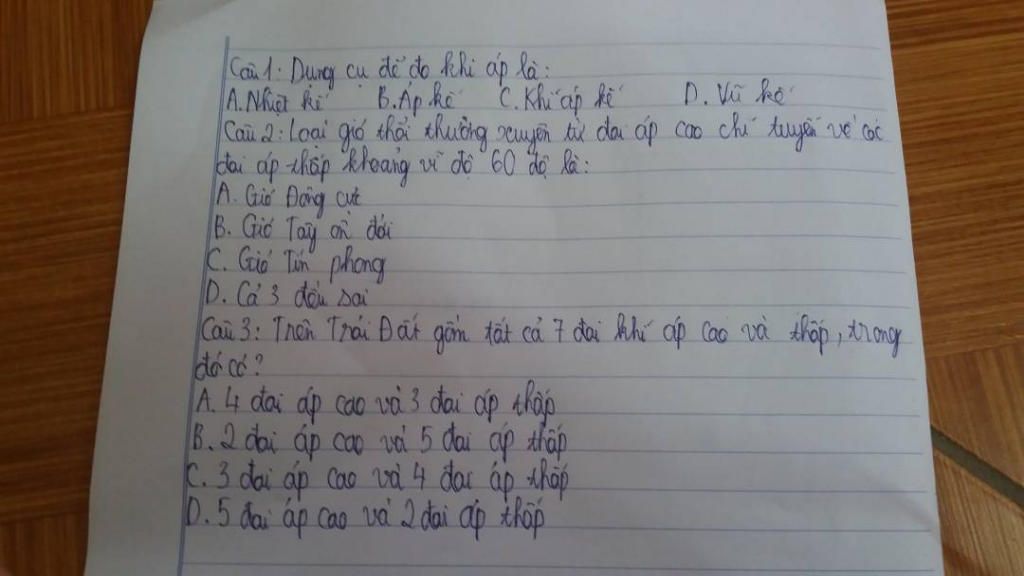 Câu 1: Dụng cụ để đo khí áp là:
A. Nhiệt kế B. Áp kế C. Khí áp kế D. Vũ kế
Câu 2: Loại gió thổi thường xuyên từ đai áp cao chí tuyến về các
đai áp thấp khoảng vĩ độ 60 độ là:
A. Gió Đông cực
B. Gió Tây ôn đới
C. Gió Tín phong
D. Cả 3 đều sai
Câu 3: Trên Trái Đất gồm tất cả 7 đai khí áp cao và thấp, trong
đó có?
A. 4 đai áp cao và 3 đai áp thấp
B. 2 đai áp cao và 5 đai áp thấp
C. 3 đai áp cao và 4 đai áp thấp
D. 5 đai áp cao và 2 đai áp thấp